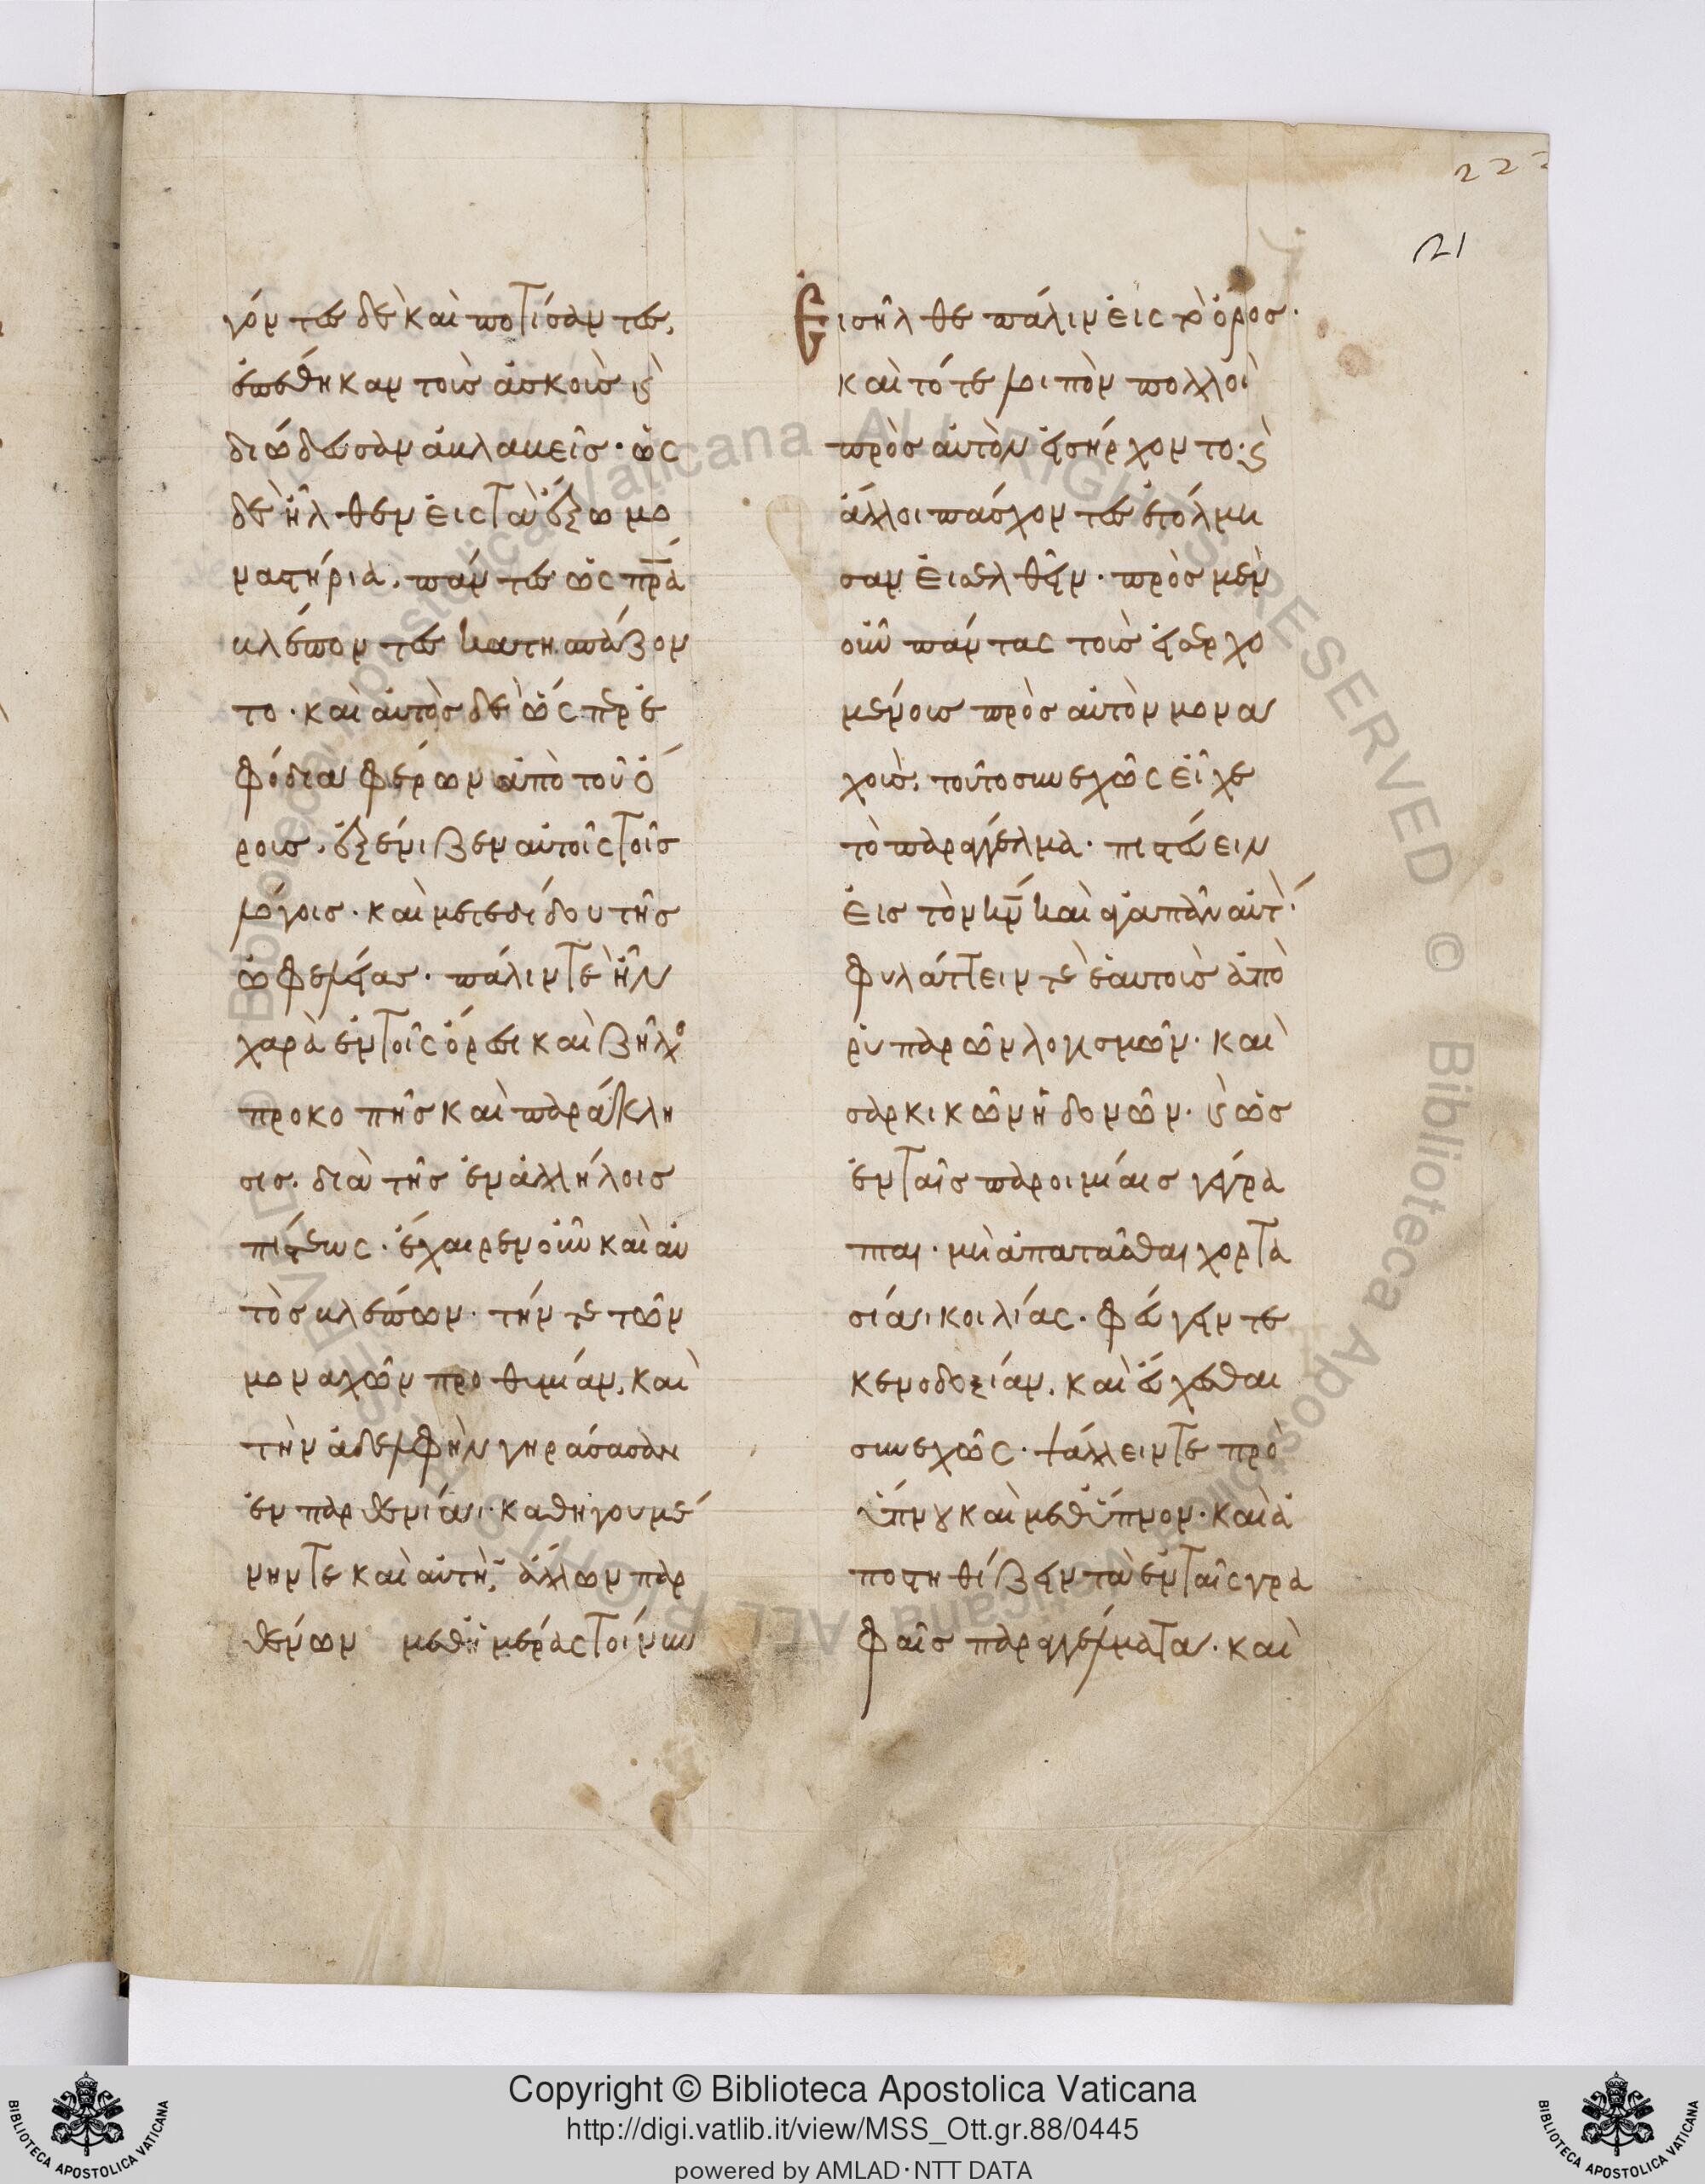 γόντες δὲ καὶ ποτίσαντες,
ἐπέθηκαν τοὺς ἀσκοὺς ϗ
διώδευσαν ἀκλακεῖς· ὡς
δὲ ἦλθεν εἰς τὰ ἔξω μο
ναστήρια, πάντες ὡς πρ̅α
βλέποντες κατησπάζον
το· καὶ αὐτὸς δὲ ὥσπερ ἐ
φόδια φέρων ἀπὸ τοῦ ὄ
ρους, ἐξένιζεν αὐτοὺς τοῖς
λόγοις· καὶ μετεδίδου τῆς
ὠφελείας· πάλιν τε ἦν
χαρὰ ἐν τοῖς ὄρεσι καὶ ζῆλο
προκοπῆς καὶ παράκλη
σις διὰ τῆς ἐν ἀλλήλοις
πίστεως· ἔχαιρεν οὖν καὶ αὐ
τὸς βλέπων· τήν τε τῶν
μοναχῶν προθυμίαν, καὶ
τὴν ἀδελφὴν γηράσασαν
ἐν παρθενίαι· καθηγουμέ
νην τε καὶ αὐτὴν ἄλλων παρ
θένων μεθ ἡμέρας τοίνυν
Εισῆλθε πάλιν εἰς τὸ ὄρος·
καὶ τότε λοιπὸν πολλοὶ
πρὸς αὐτὸν εἰσήρχοντο· ϗ
ἄλλοι πάσχοντες ἐτόλμη
σαν εἰσελθεῖν· πρὸς μὲν
οὖν πάντας τοὺς εἰσερχο
μένους πρὸς αὐτὸν μονα
χούς, τοῦτο συνεχῶς εἶχε
τὸ παράγγελμα· πιστεύειν
εἰς τὸν κν̅ καὶ ἀγαπᾶν αὐτ·
φυλάττειν τε ἑαυτοὺς ἀπὸ
ῥυπαρῶν λογισμῶν· καὶ
σαρκικῶν ἡδονῶν· ϗ ὡς
ἐν ταῖς παροιμίαις γέγρα
πται· μὴ ἀπατᾶσθαι χορτα
σίαι κοιλίας· φεύγειν τε
κενοδοξίαν, καὶ εὔχεσθαι
συνεχῶς· ψάλλειν τε πρὸ
ὕπνου καὶ μεθ ὕπνον· καὶ ἀ
ποστηθίζειν τὰ ἐν ταῖς γρα
φαῖς παραγγέλματα· καὶ
21
Copyright © Biblioteca Apostolica Vaticana
http://digi.vatlib.it/view/MSS_Ott.gr.88/0445
powered by AMLAD·NTT DATA
BIBLIOTECA APOSTOLICA VATICANA
BIBLIOTECA APOSTOLICA VATICANA